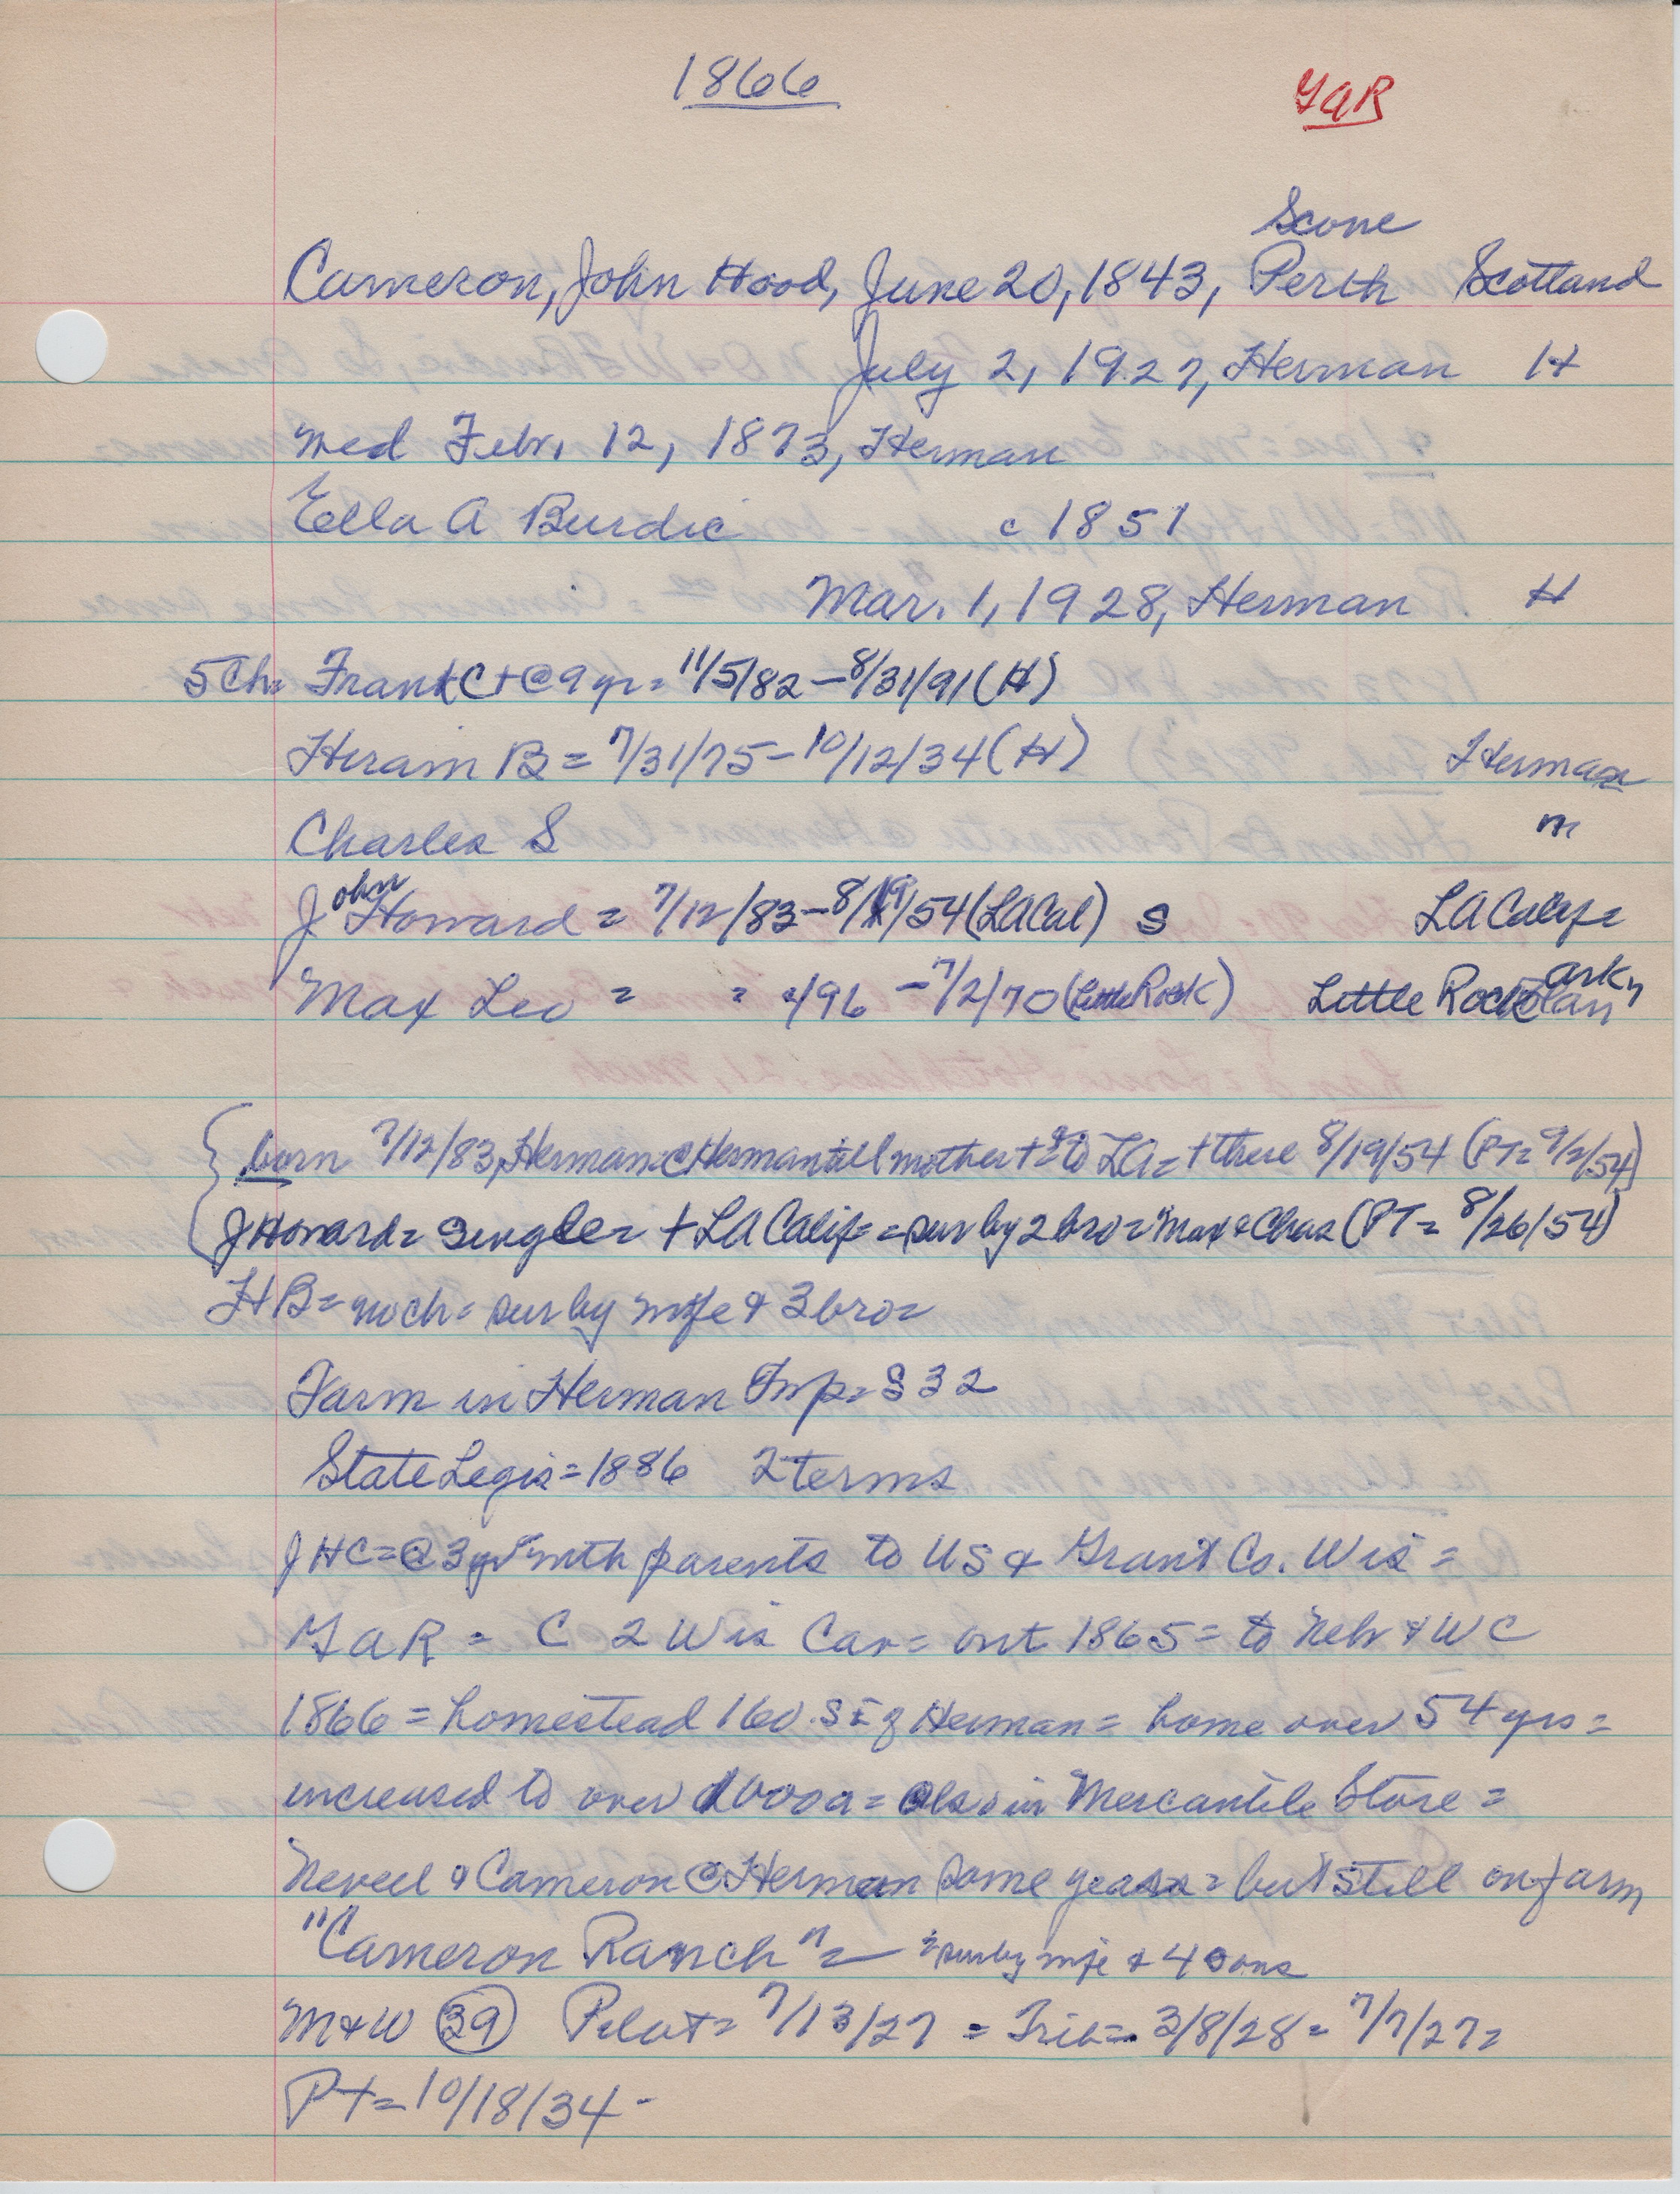 1866
GaR
Scone
Cameron, John Hood, June 20, 1843, Perth Scotland
July 2, 1927, Herman H
med Febr. 12, 1873, Herman
Ella A Burdic c 1851
Mar. 1, 1928, Herman H
5 Ch= Frank C + @ 9 yr = 11/5/82 - 8/31/91 (H)
Hiram B = 7/31/75 - 10/12/34 (H) Herman
Charles S m
John Howard = 7/12/83 - 8/19/54 (LA Cal) S LA Calif=
Max Leo = = c/96 - 7/2/70 (Little Rock) Little Rock Ark
born 7/12/83, Herman = @ Herman till mother + = to LA = + there 8/19/54 (PT= 9/2/54)
J Howard = single = + LA Calif = sur by 2 bro = Max & Chas (PT = 8/26/54)
HB = no ch = sur by wife & 3 bro =
Farm in Herman Twp = S 32
State Legis = 1886 2 terms
JHC = @ 3 yr with parents to US & Grant Co. Wis =
GaR = C 2 Wis Cav = out 1865 = to Nebr & WC
1866 = homestead 160 SE of Herman = home over 54 yrs =
increased to over 1000a = also in Mercantile Store =
& Cameron @ Herman some years = but still on farm
"Cameron Ranch" = = sur by wife & 4 sons
M & W (39) Pilot = 7/13/27 = Trib = 3/8/28 = 7/7/27 =
PT = 10/18/34 -